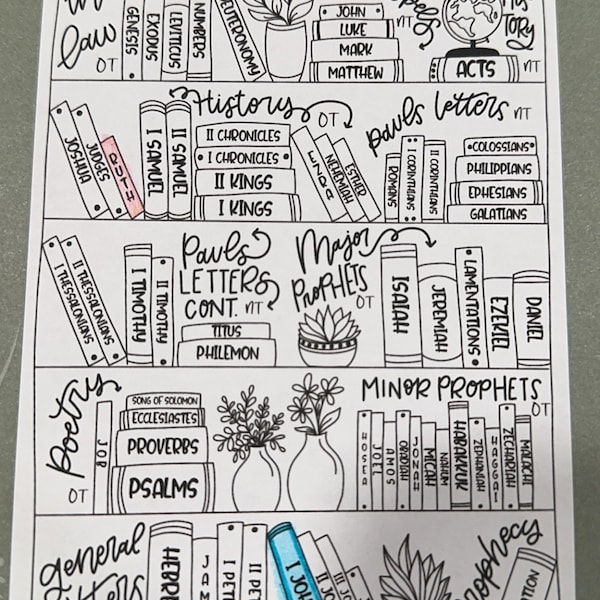 law
OT
GENESIS
EXODUS
LEVITICUS
NUMBERS
DEUTERONOMY
JOHN
LUKE
MARK
MATTHEW
NT
ACTS
NT
History
OT
JOSHUA
JUDGES
RUTH
I SAMUEL
II SAMUEL
II CHRONICLES
I CHRONICLES
II KINGS
I KINGS
EZRA
NEHEMIAH
ESTHER
Pauls letters NT
ROMANS
I CORINTHIANS
II CORINTHIANS
COLOSSIANS
PHILIPPIANS
EPHESIANS
GALATIANS
I THESSALONIANS
II THESSALONIANS
I TIMOTHY
II TIMOTHY
Pauls
LETTERS
CONT. NT
TITUS
PHILEMON
Major
PROPHETS
OT
ISAIAH
JEREMIAH
LAMENTATIONS
EZEKIEL
DANIEL
Poetry
OT
JOB
SONG OF SOLOMON
ECCLESIASTES
PROVERBS
PSALMS
MINOR PROPHETS
OT
HOSEA
JOEL
AMOS
OBADIAH
JONAH
MICAH
NAHUM
HABAKKUK
ZEPHANIAH
HAGGAI
ZECHARIAH
MALACHI
general